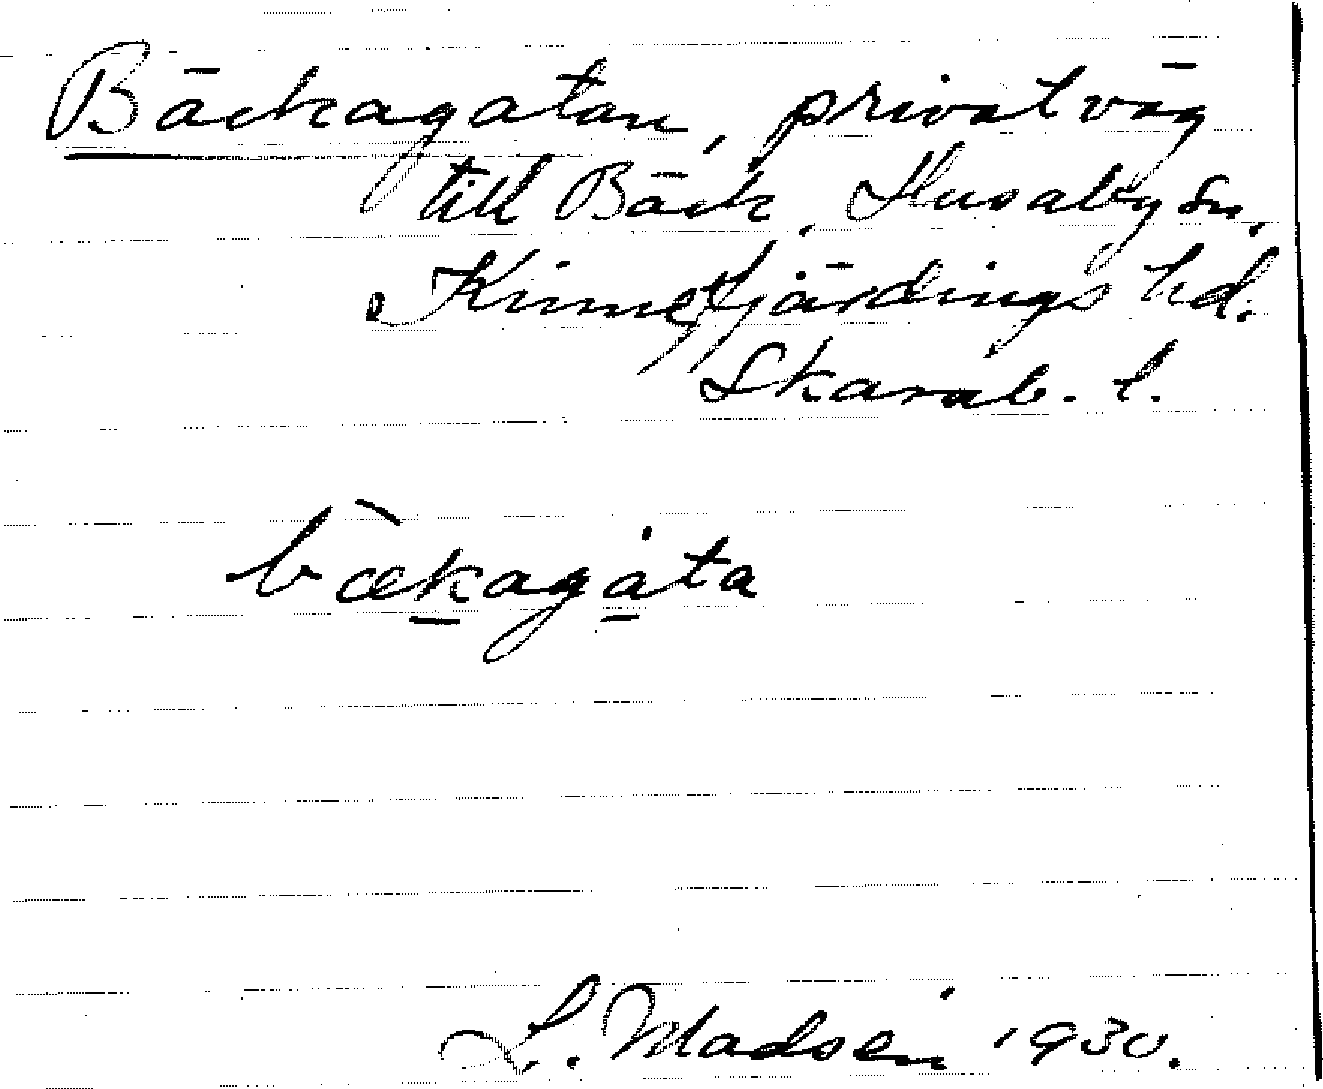 Bäckagatan, privat väg
till Bäck, Husaby sn,
Kinnefjärdings hd.
Skarab. l.
bæ̀kagȧta
L. Madsén 1930.